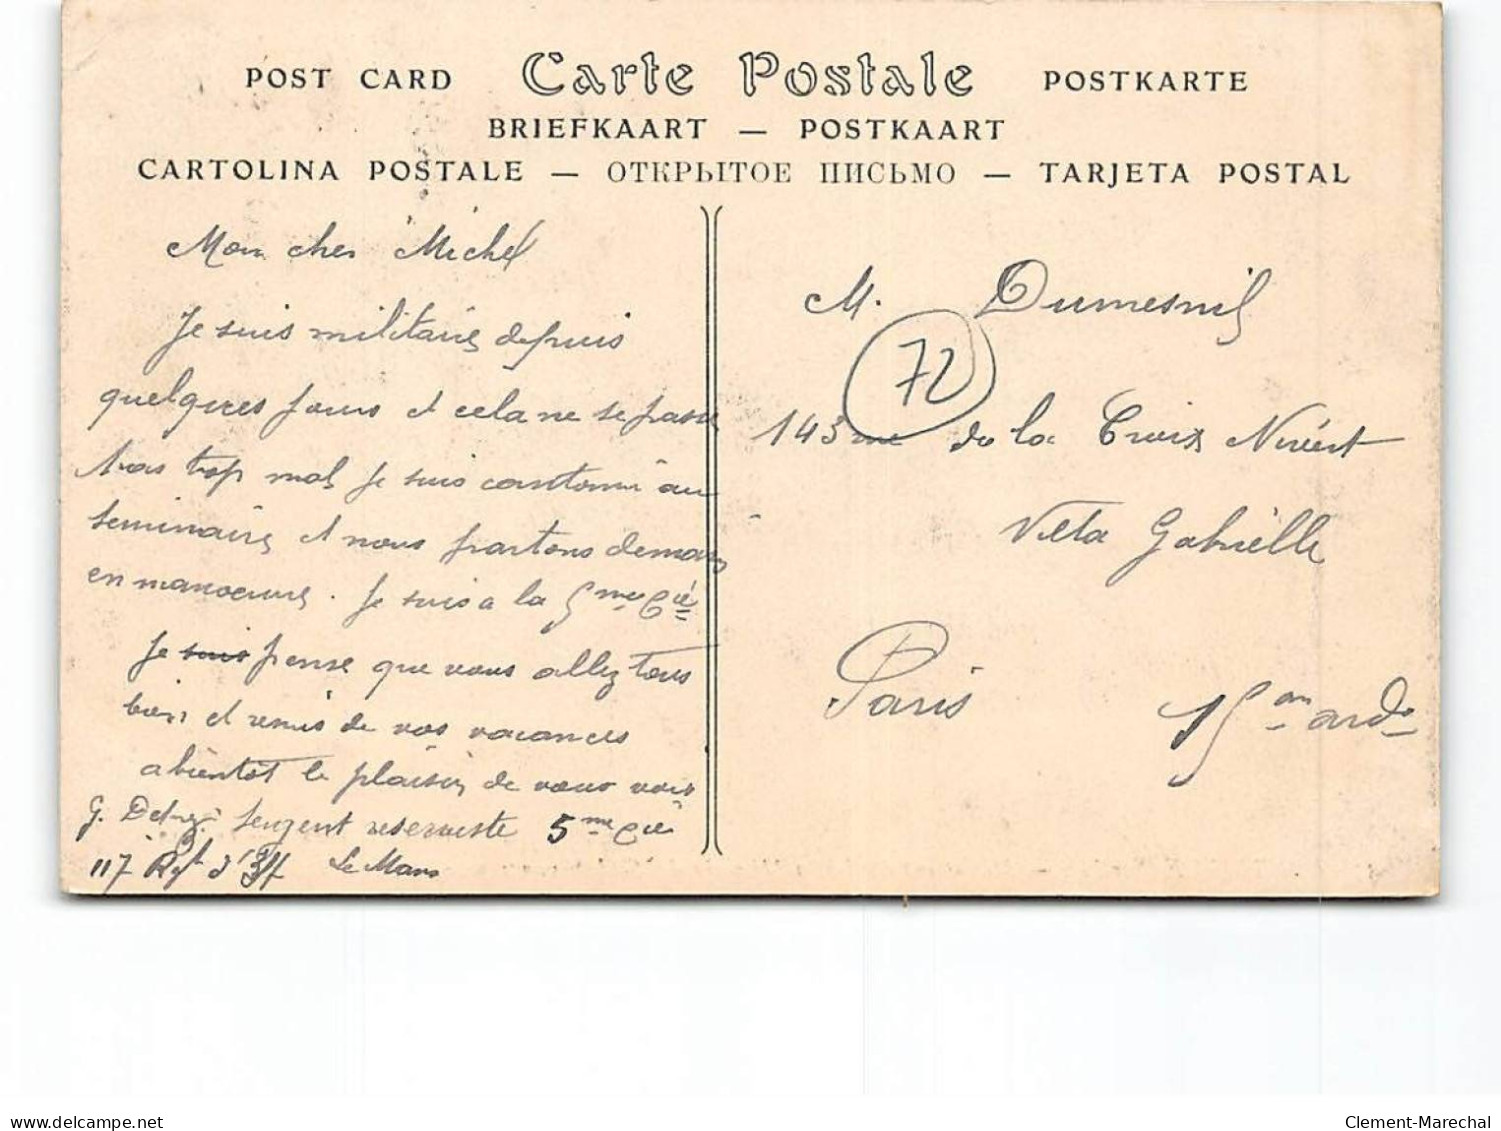 POST CARD Carte Postale POSTKARTE
BRIEFKAART — POSTKAART
CARTOLINA POSTALE — ОТКРЫТОЕ ПИСЬМО — TARJETA POSTAL
Mon cher Michel
Je suis militaire depuis
quelques jours et cela ne se passe
pas trop mal je suis cantonné au
seminaire et nous partons demain
en manoeuvre. Je suis a la 5me Cie
Je suis pense que vous allez tous
bien et remis de vos vacances
a bientot le plaisir de vous voir
G. Sergent reserviste 5me Cie
117 Rgt d'Iff Le Mans
M. Dumesnil
72
143 rue de la Croix Nivert
Villa Gabrielle
Paris 15me ardt
delcampe.net
Clement-Marechal